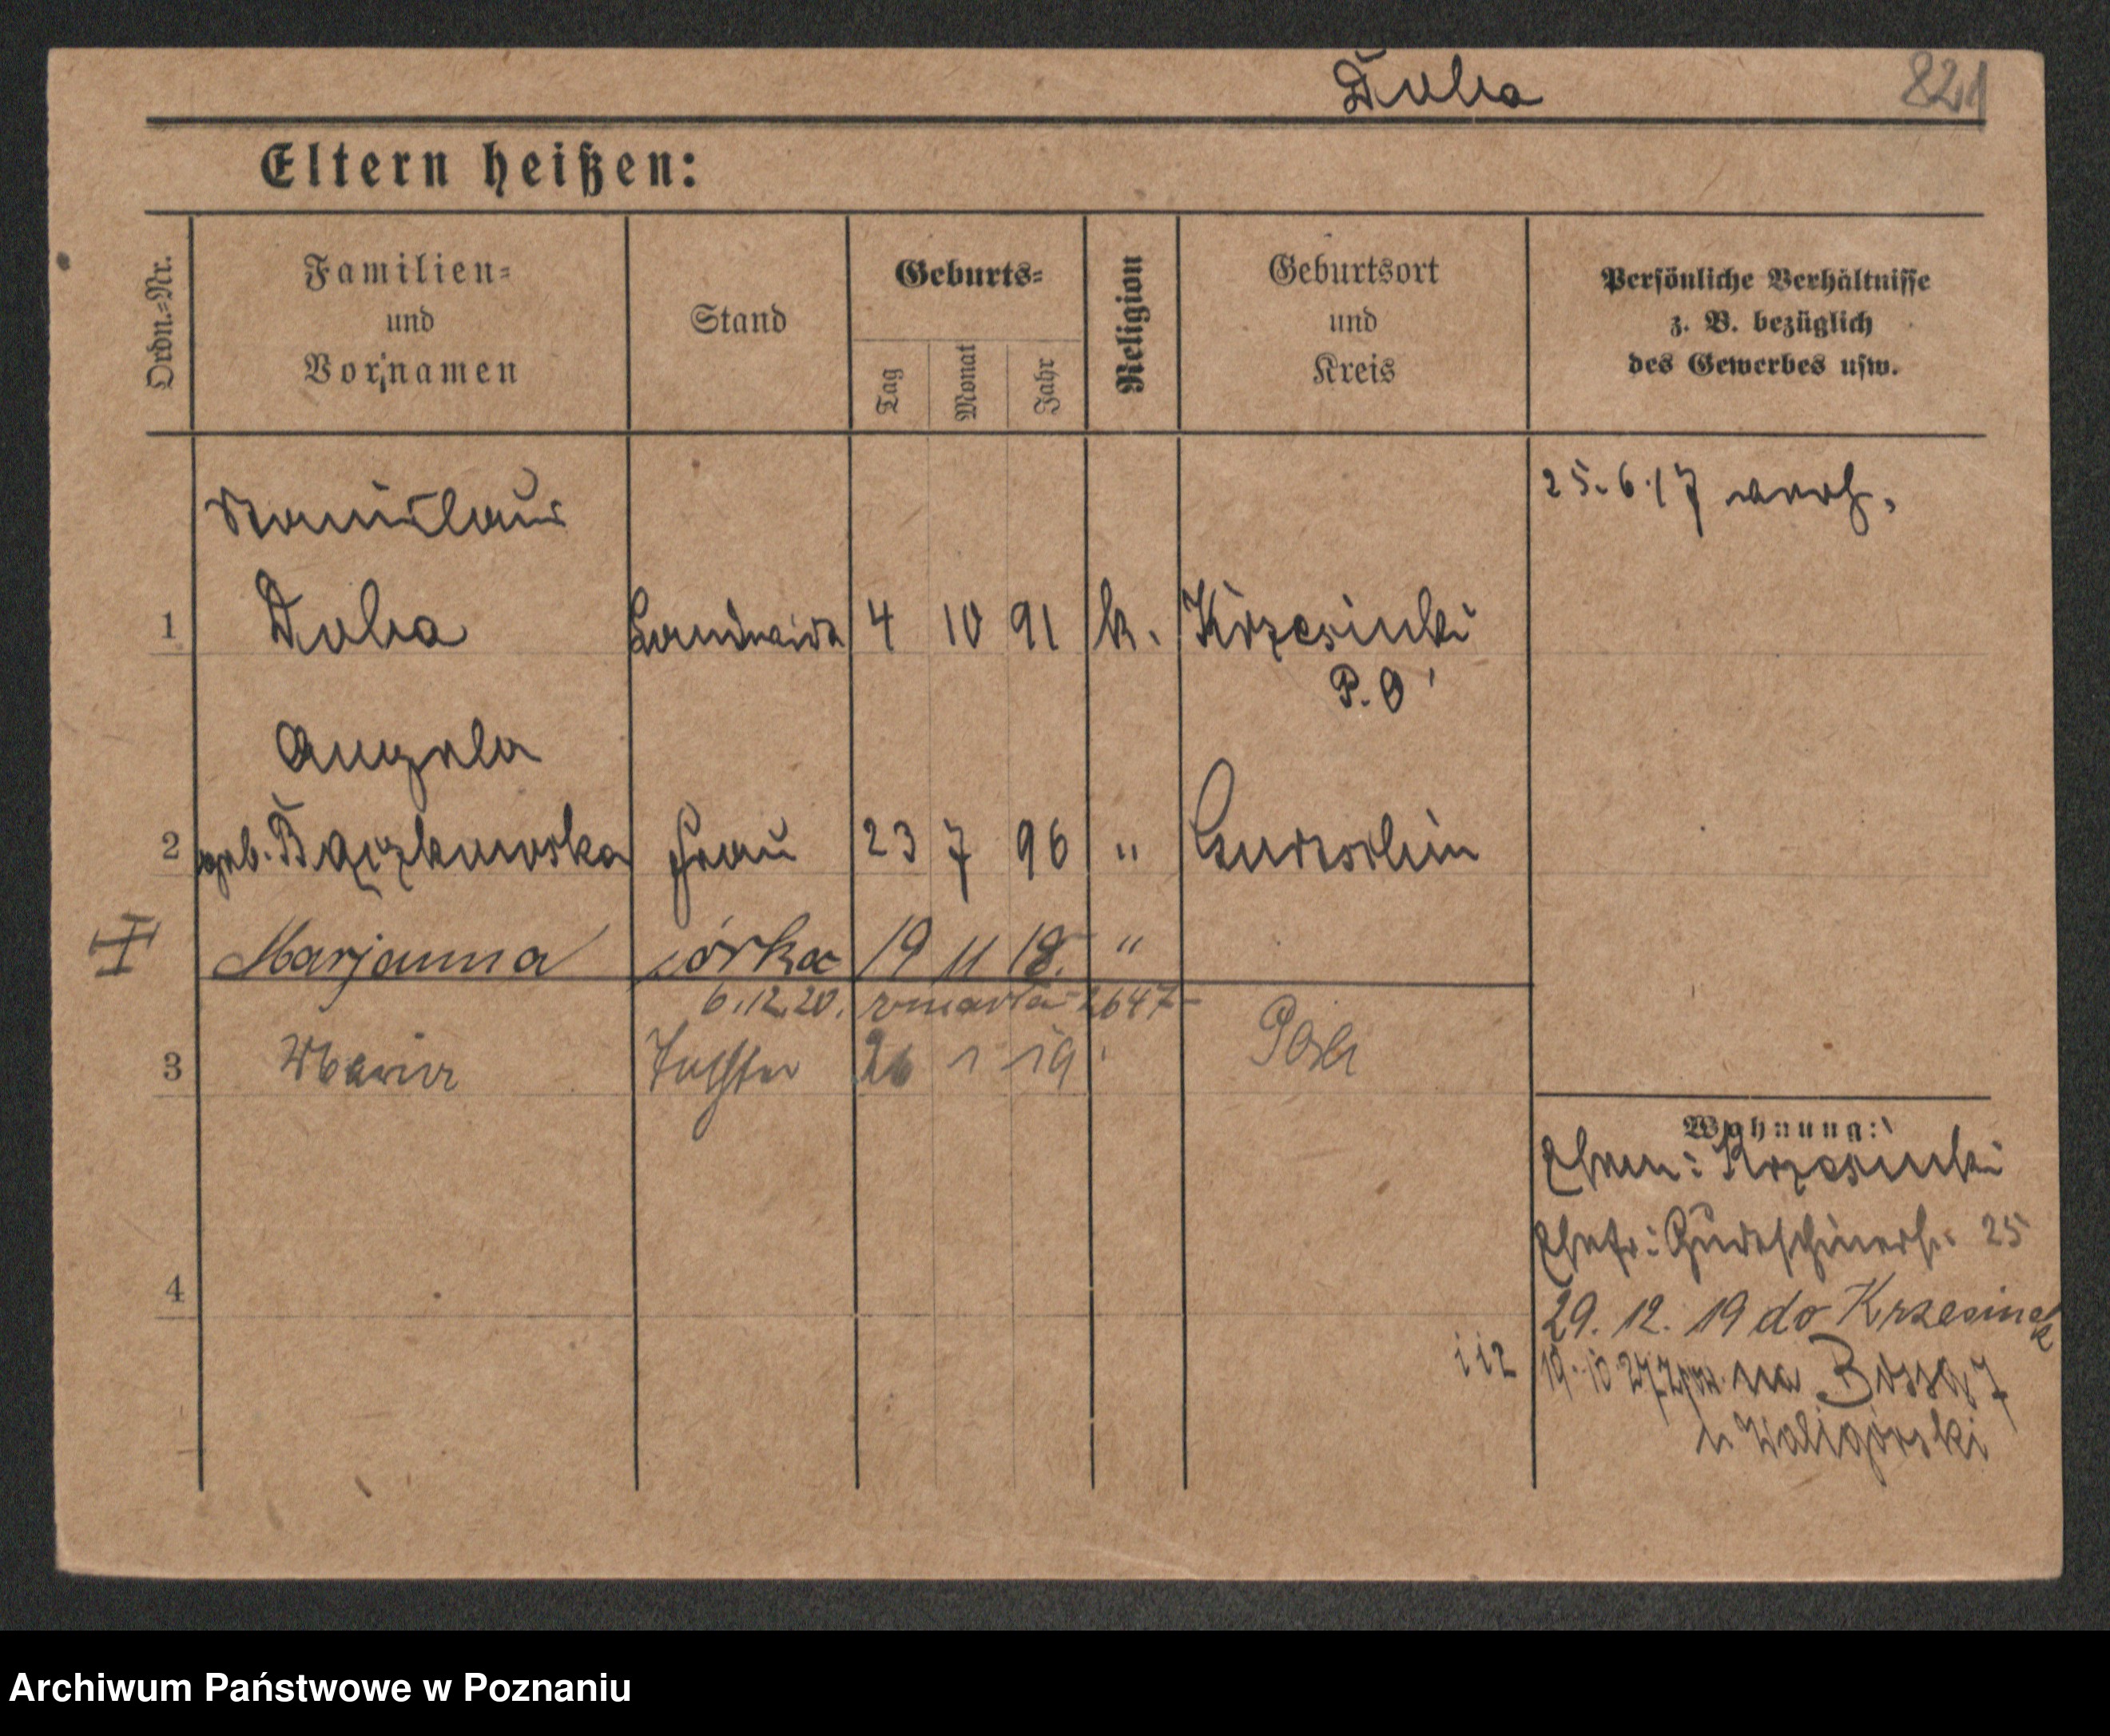 Duba
821
Eltern heißen:
Ordn.=Nr.
Familien=
und
Vornamen
Stand
Geburts=
Tag
Monat
Jahr
Religion
Geburtsort
und
Kreis
Persönliche Verhältnisse
z. B. bezüglich
des Gewerbes usw.
Stanislaus
25.6.17 verh.
1 Duba Landwirt 4 10 91 k. Krzesinki
P. O
Angela
2 geb. Bączkowska Frau 23 7 96 " Gurtschin
Marjanna córka 19 11 18. "
6.12.20. zmarła 2647
3 Maria Tochter 26 1 19 Posen
Wohnung:
Ehem: Krzesinki
Ehefr: Gurtschinerstr. 25
4
29. 12. 19 do Krzesinek
i i 2 19.10.27 na Bossa 7
u Waligórski
Archiwum Państwowe w Poznaniu